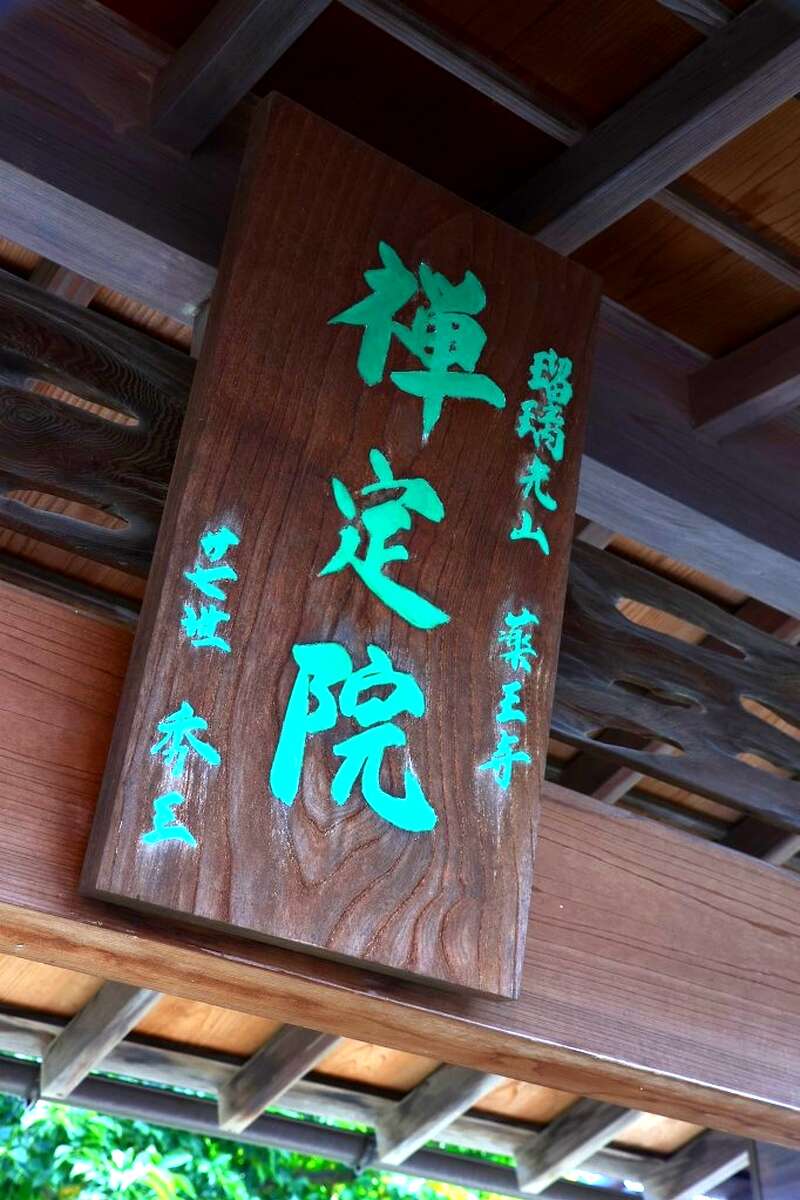 瑠璃光山 薬王寺
禅定院
廿七世 秀王